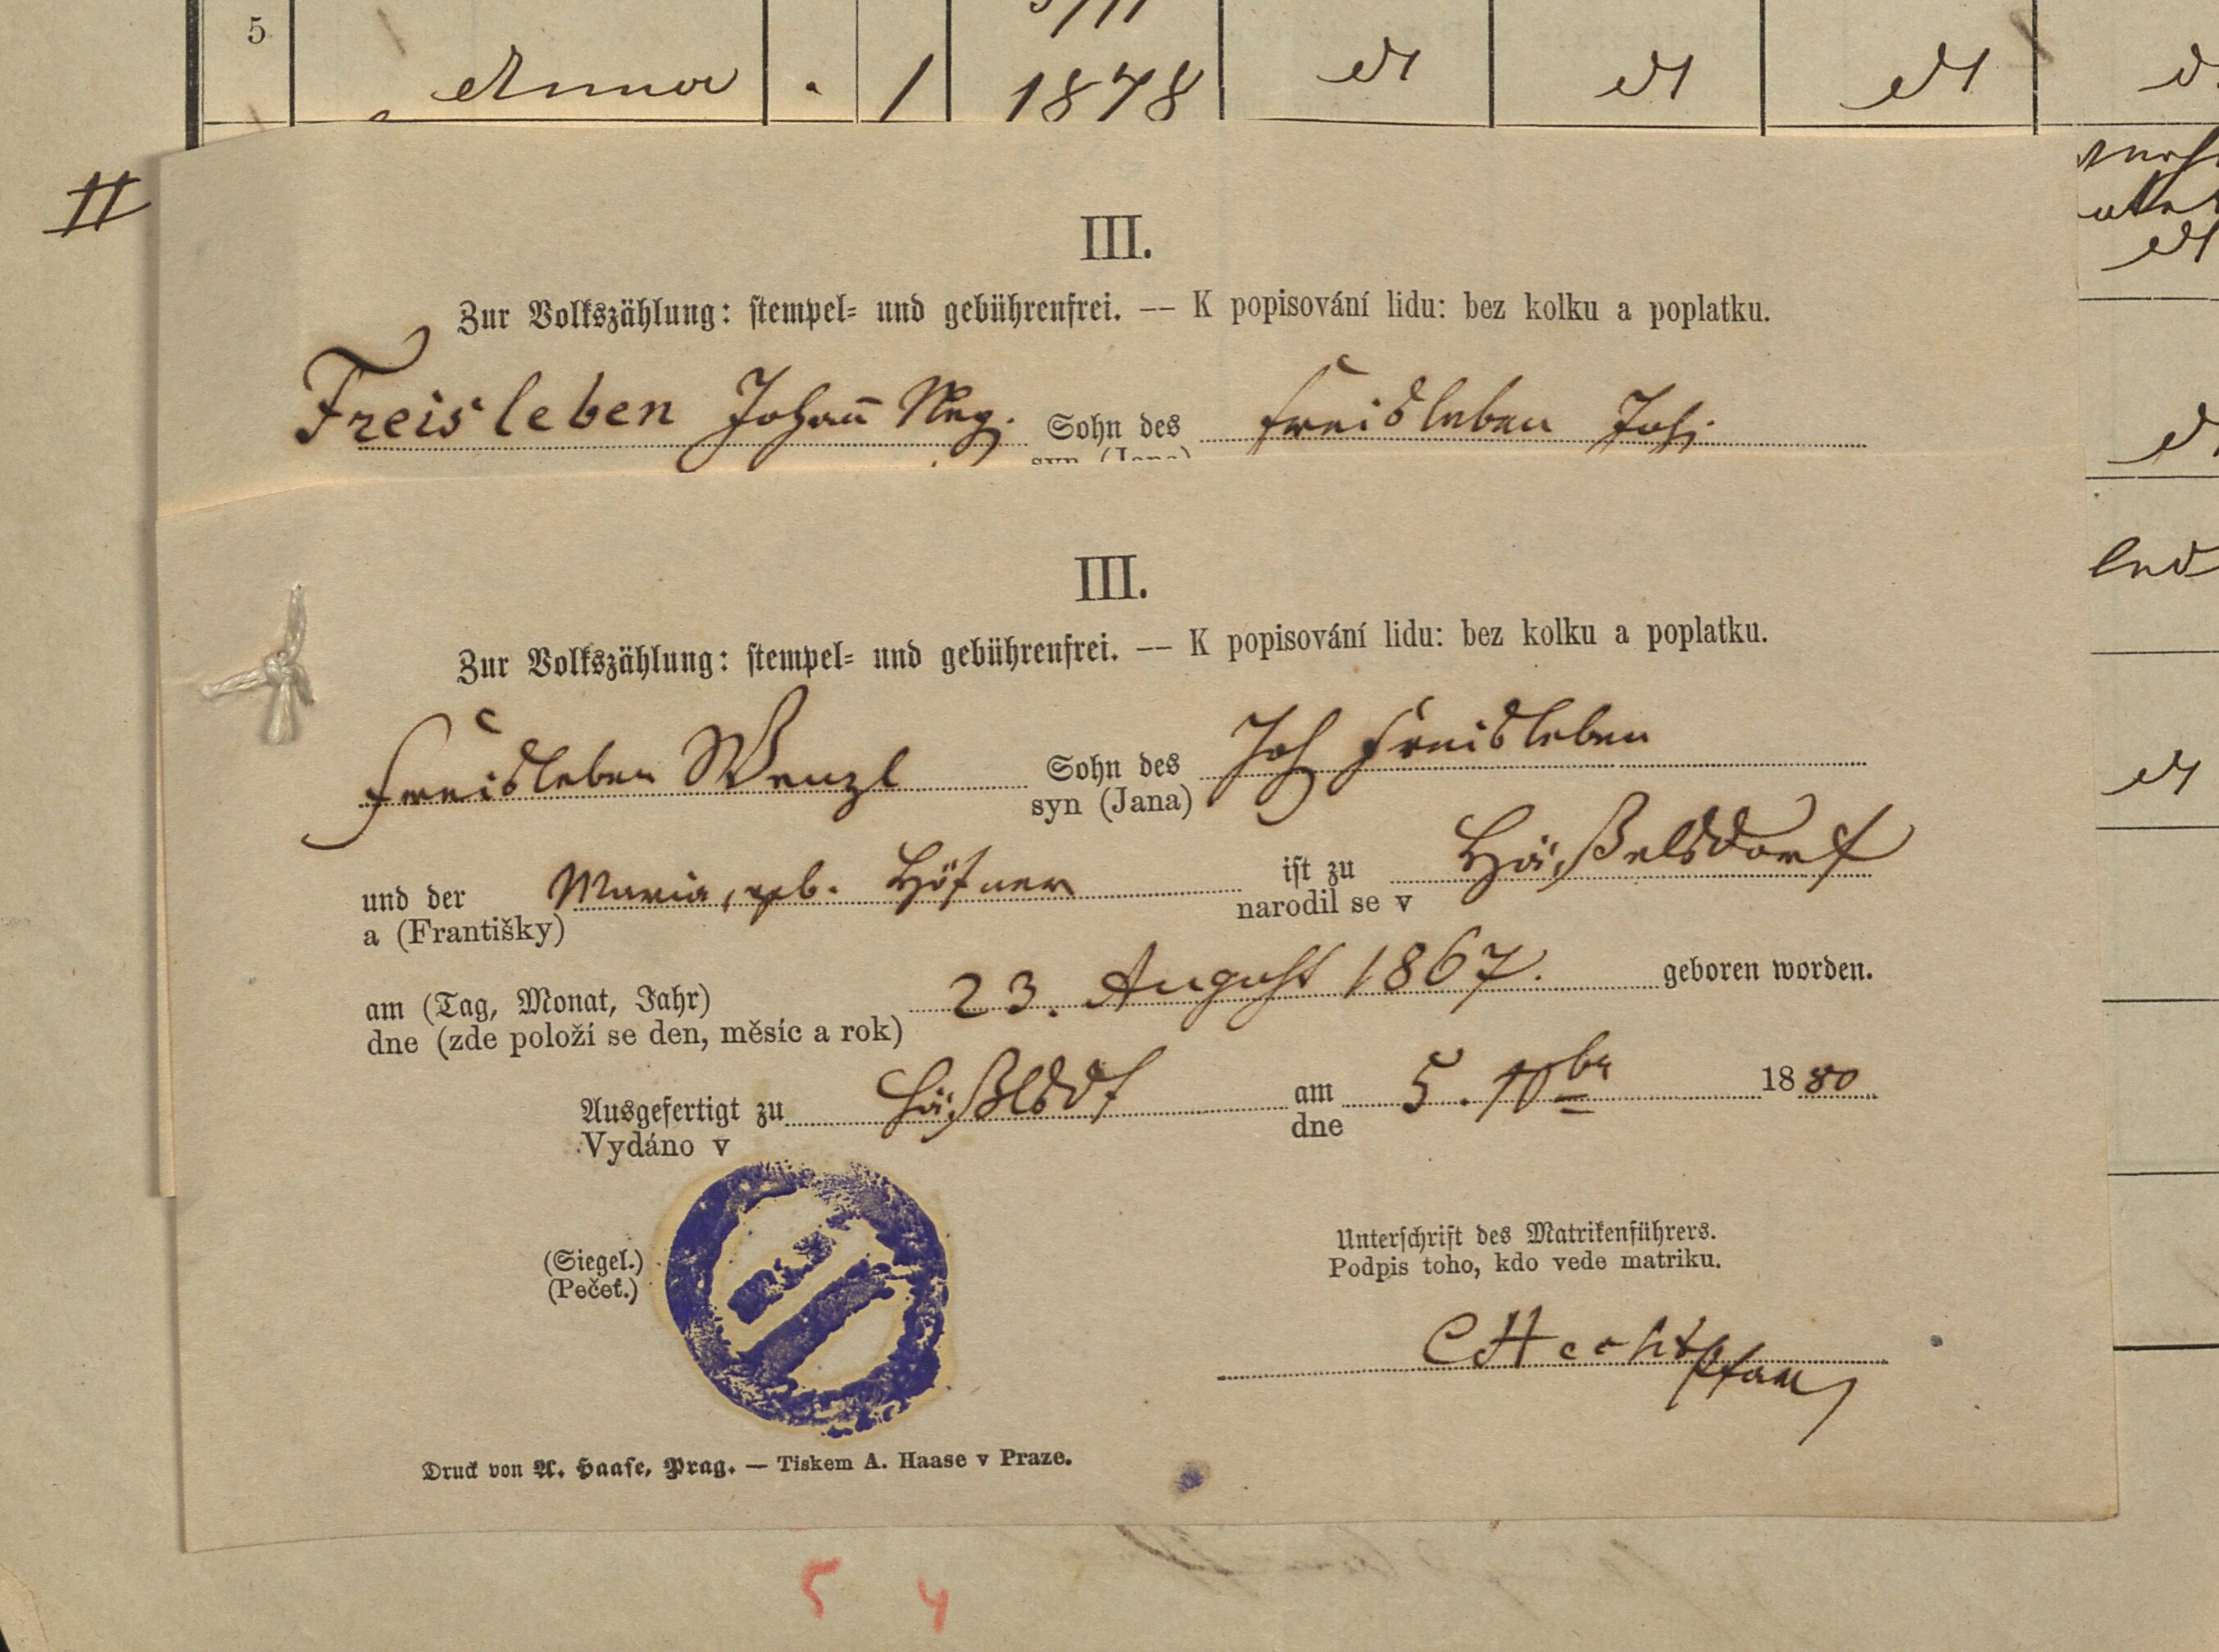 5 Anna . 1 1878 dt dt dt
II
III.
Zur Volkszählung: stempel- und gebührenfrei. — K popisování lidu: bez kolku a poplatku.
Freisleben Johann Sohn des Freisleben Joh.
III.
Zur Volkszählung: stempel- und gebührenfrei. — K popisování lidu: bez kolku a poplatku.
Freisleben Wenzl Sohn des Joh Freisleben
syn (Jana)
und der Maria, geb. Höfner ist zu Häßelsdorf
a (Františky) narodil se v
am (Tag, Monat, Jahr) 23. August 1867. geboren worden.
dne (zde položí se den, měsíc a rok)
Ausgefertigt zu Häßlsdf am 5. 10br 1880
Vydáno v dne
(Siegel.)
(Pečeť.)
Unterschrift des Matrikenführers.
Podpis toho, kdo vede matriku.
CHecht
Pfarr
Druck von A. Haase, Prag. — Tiskem A. Haase v Praze.
5 4